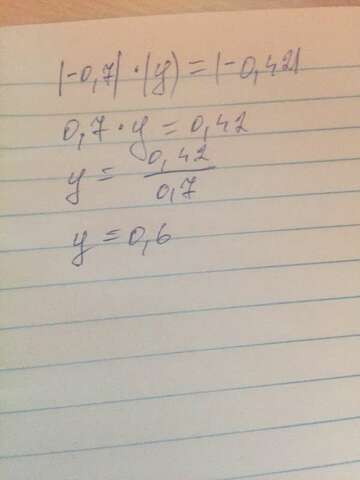 |-0,7| · |y) = |-0,42|
0,7 · y = 0,42
y = 0,42/0,7
y = 0,6